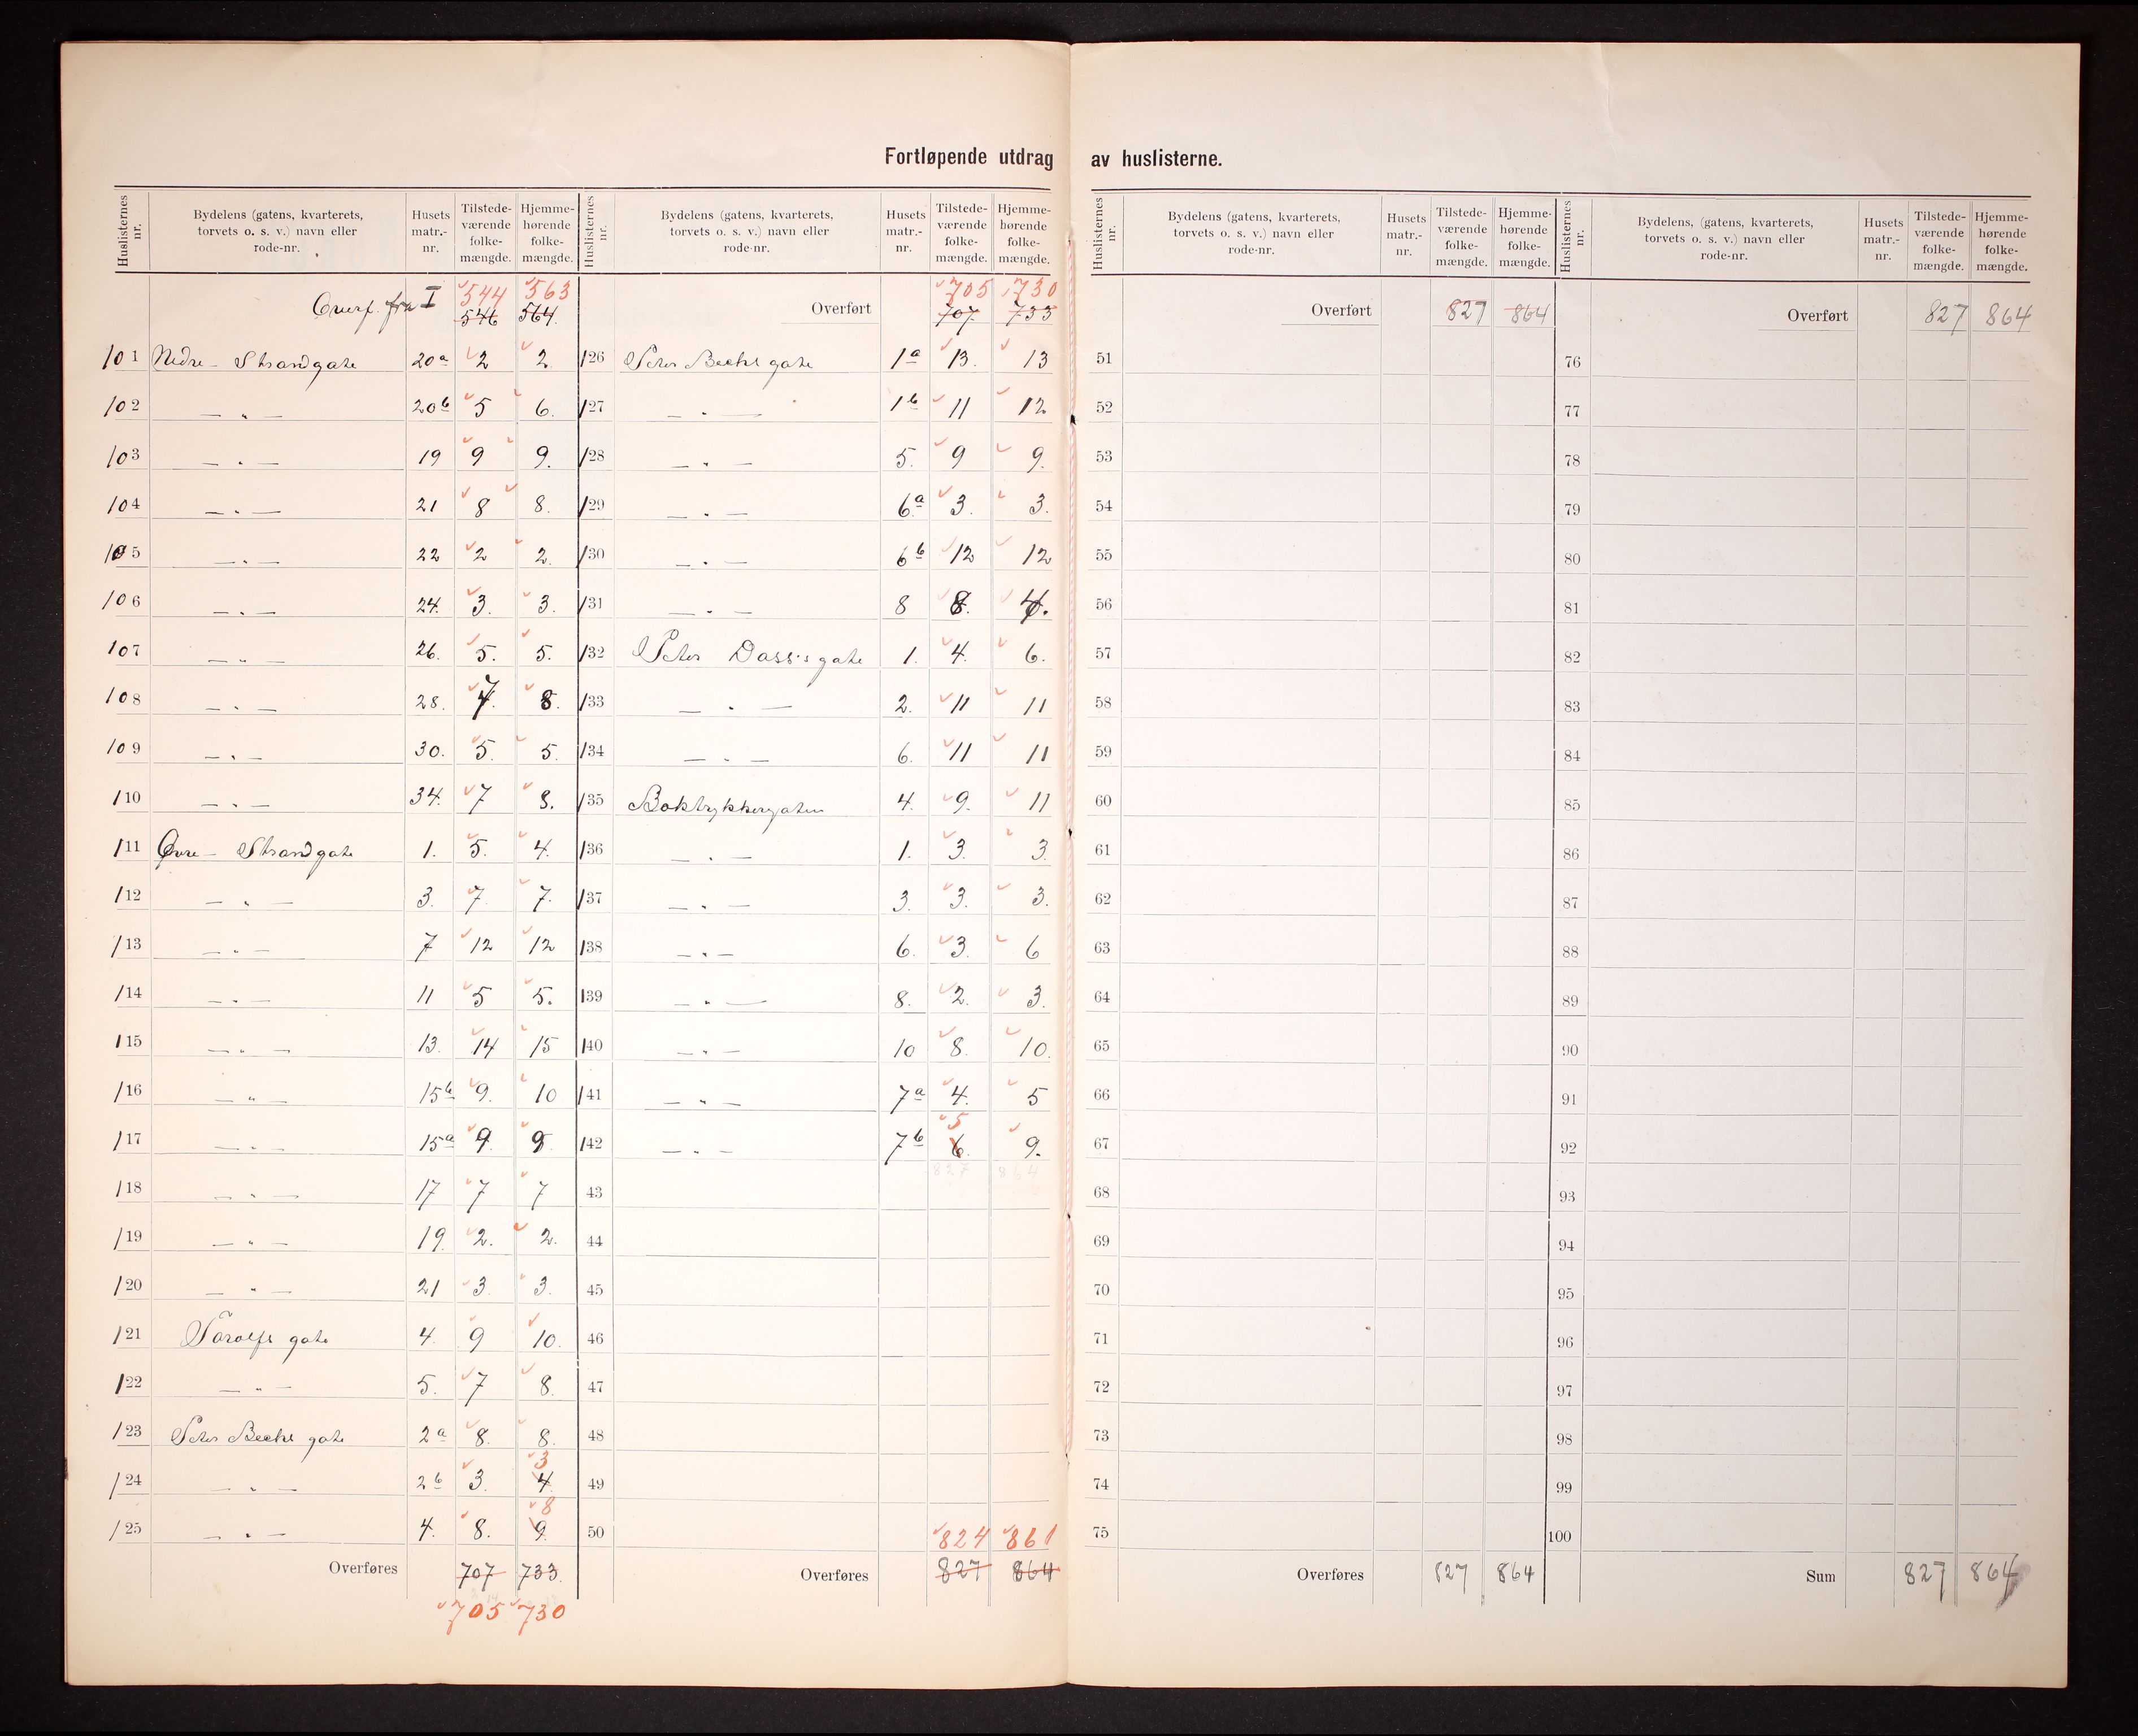 Fortløpende utdrag av huslisterne.
Huslisternes nr. Bydelens (gatens, kvarterets, torvets o. s. v.) navn eller rode-nr. Husets matr.-nr. Tilstede-værende folke-mængde. Hjemme-hørende folke-mængde.
Overf. fra I 544 563
546 564.
101 Nedre - Strandgate 20a 2 2
102 — „ — 20b 5 6.
103 — „ — 19 9 9.
104 — „ — 21 8 8.
105 — „ — 22 2 2
106 — „ — 24. 3. 3.
107 — „ — 26. 5. 5.
108 — „ — 28. 7. 8.
109 — „ — 30. 5. 5.
110 — „ — 34. 7 8.
111 Øvre - Strandgate 1. 5. 4.
112 — „ — 3. 7. 7.
113 — „ — 7 12 12
114 — „ — 11 5 5.
115 — „ — 13. 14 15
116 — „ — 15b 9. 10
117 — „ — 15a 9. 9
118 — „ — 17 7 7
119 — „ — 19. 2. 2.
120 — „ — 21 3 3.
121 Torolfs gate 4. 9 10.
122 — „ — 5. 7 8.
123 Peter Becks gate 2a 8. 8.
3
124 — „ — 2b 3. 4
8
125 — „ — 4. 8. 9.
Overføres 707 733.
705 730
Huslisternes nr. Bydelens (gatens, kvarterets, torvets o. s. v.) navn eller rode-nr. Husets matr.-nr. Tilstede-værende folke-mængde. Hjemme-hørende folke-mængde.
705 730
Overført 707. 733
126 Peter Becks gate 1a 13. 13
127 — „ — 1b 11 12
128 — „ — 5. 9 9.
129 — „ — 6a 3. 3.
130 — „ — 6b 12 12
131 — „ — 8 8.
132 Peter Dass's gate 1. 4. 6.
133 — „ — 2. 11 11
134 — „ — 6. 11 11
135 Boktrykkergaten 4. 9. 11
136 — „ — 1. 3. 3.
137 — „ — 3. 3. 3.
138 — „ — 6. 3. 6
139 — „ — 8. 2. 3.
140 — „ — 10 8. 10.
141 — „ — 7a 4. 5
5
142 — „ — 7b 6. 9.
827 864
43
44
45
46
47
48
49
50 824 861
Overføres 827 864
Huslisternes nr. Bydelens (gatens, kvarterets, torvets o. s. v.) navn eller rode-nr. Husets matr.-nr. Tilstede-værende folke-mængde. Hjemme-hørende folke-mængde.
Overført 827 864
51
52
53
54
55
56
57
58
59
60
61
62
63
64
65
66
67
68
69
70
71
72
73
74
75
Overføres 827 864
Huslisternes nr. Bydelens, (gatens, kvarterets, torvets o. s. v.) navn eller rode-nr. Husets matr.-nr. Tilstede-værende folke-mængde. Hjemme-hørende folke-mængde.
Overført 827 864
76
77
78
79
80
81
82
83
84
85
86
87
88
89
90
91
92
93
94
95
96
97
98
99
100
Sum 827 864